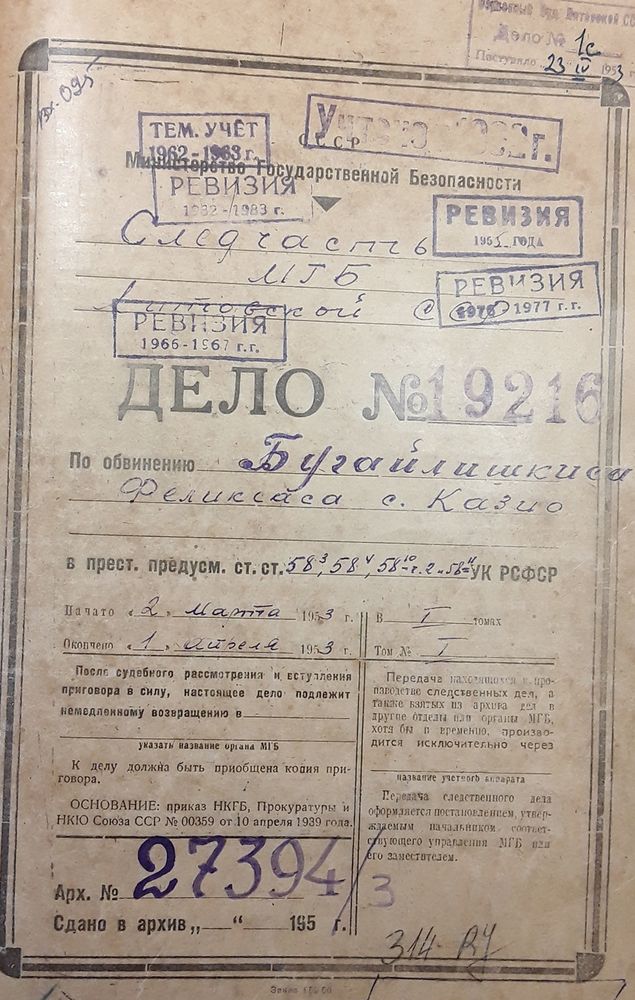 Верховный Суд Литовской ССР
Дело № 1с
Поступило 23 IV 1953
вх. 095
ТЕМ. УЧЁТ
1962-1963 г.
Учтено 1982 г.
СССР
Министерство Государственной Безопасности
РЕВИЗИЯ
1982-1983 г.
РЕВИЗИЯ
195 ГОДА
Следчасть
МГБ
РЕВИЗИЯ
1976 1977 г.г.
Литовской ССР
РЕВИЗИЯ
1966-1967 г.г.
ДЕЛО №19216
По обвинению Бугайлишкиса
Феликсаса с. Казио
в прест. предусм. ст. ст. 58³, 58⁴, 58¹⁰ ч. 2 и 58¹¹ УК РСФСР
Начато „2„ Марта 1953 г.
Окончено „1„ Апреля 1953 г.
В I томах
Том № I
После судебного рассмотрения и вступления
приговора в силу, настоящее дело подлежит
немедленному возвращению в
указать название органа МГБ
К делу должна быть приобщена копия при-
говора.
ОСНОВАНИЕ: приказ НКГБ, Прокуратуры и
НКЮ Союза ССР № 00359 от 10 апреля 1939 года.
Передача находящихся в про-
изводстве следственных дел, а
также взятых из архива дел в
другие отделы или органы МГБ,
хотя бы и временно, произво-
дится исключительно через
название учетного аппарата
Передача следственного дела
оформляется постановлением, утвер-
ждаемым начальником соответ-
ствующего управления МГБ или
его заместителем.
Арх. № 27394/3
Сдано в архив „ “ 195 г.
314-